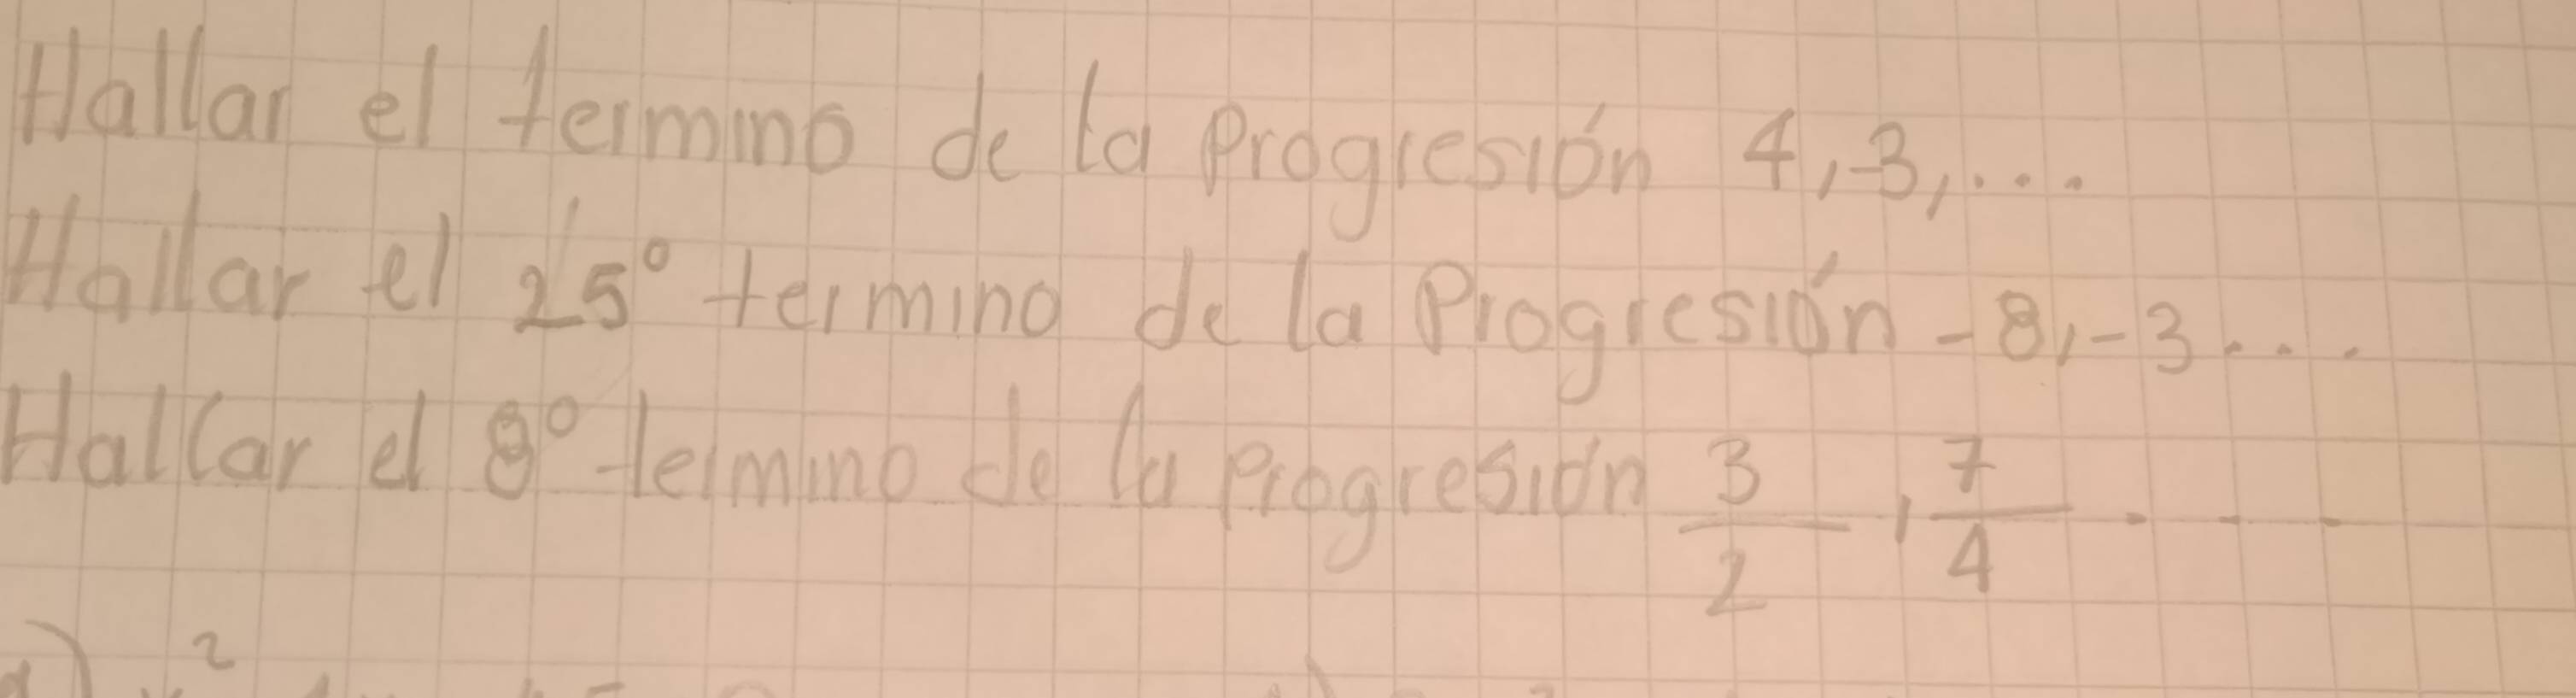 Hallar el termino de la Progresión 4,-3,...
Hallar el 25° termino de la Progresión -8,-3....
Hallar el 8° termino de la Progresión 3/2, 7/4 - - -
2